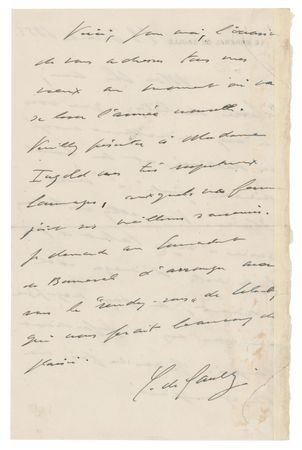 Voici, pour moi, l'occasion
de vous adresser tous mes
vœux au moment où va
se lever l'année nouvelle.
Veuillez présenter à Madame
Ingold mes très respectueux
hommages, auxquels ma femme
joint ses meilleurs souvenirs.
Je demande au Commandant
de Bonneval d'arranger avec
vous le "rendez-vous" de
qui nous ferait beaucoup de
plaisir.
C. de Gaulle